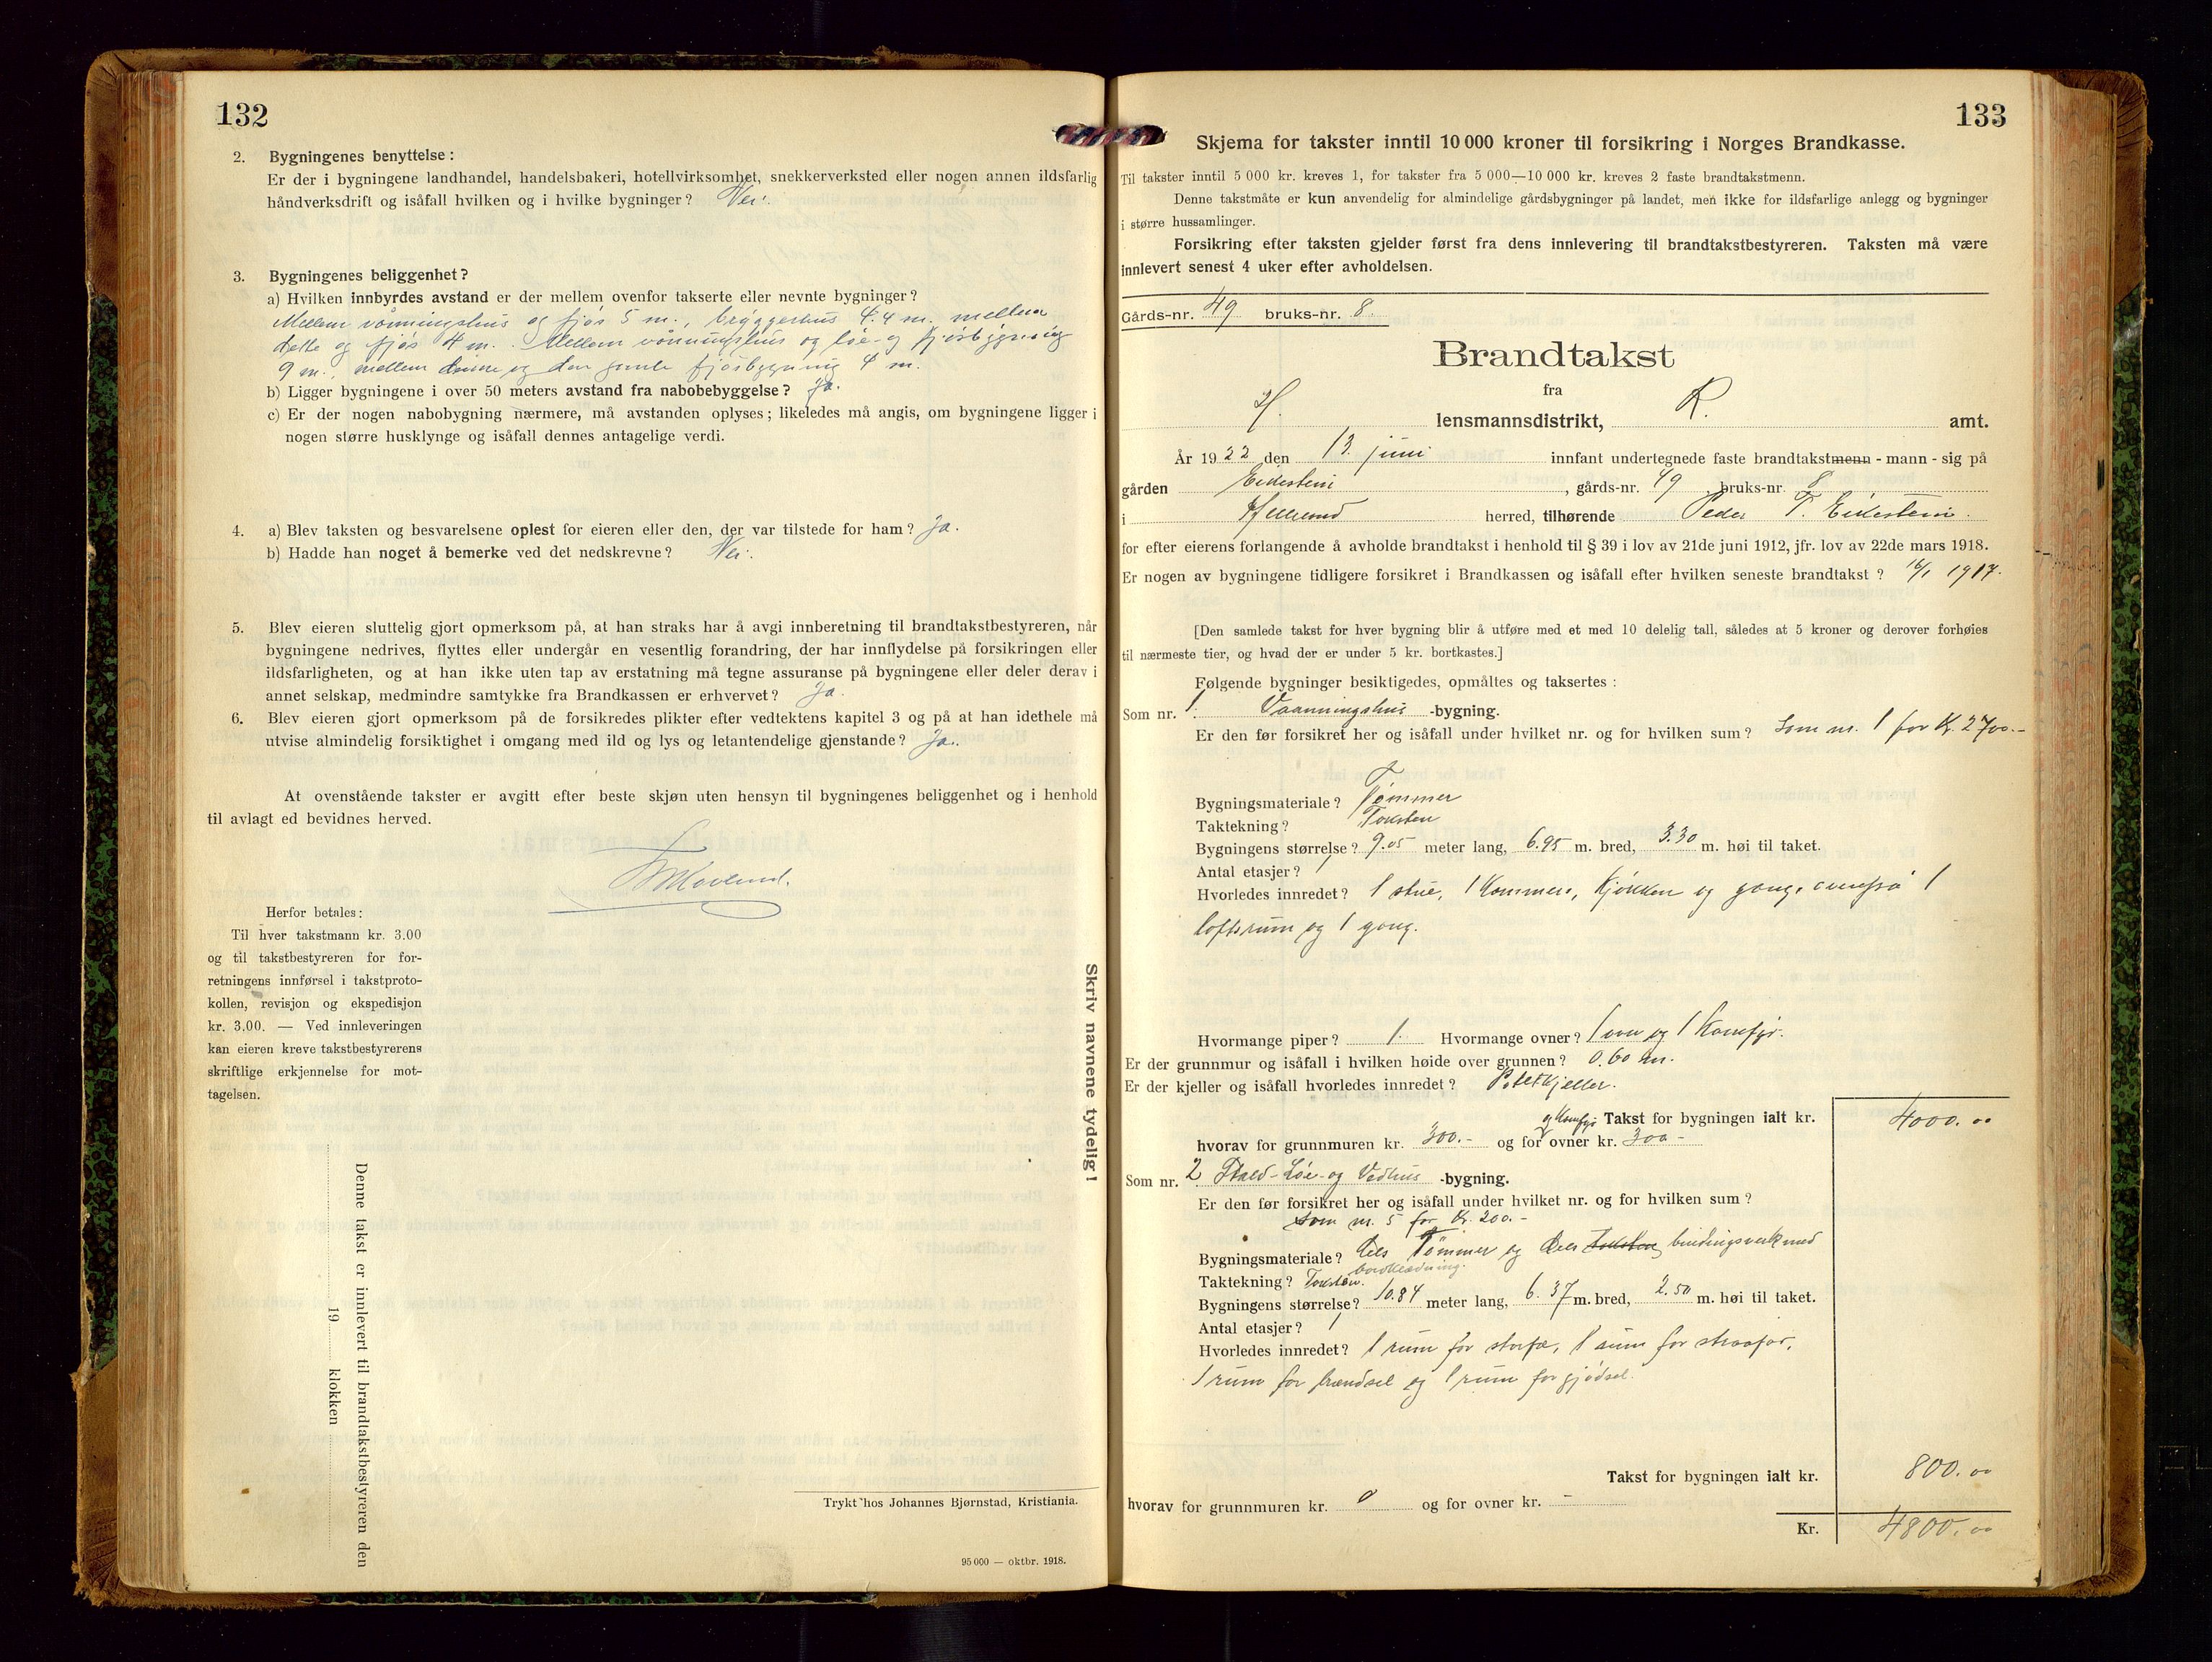 132
2. Bygningenes benyttelse:
Er der i bygningene landhandel, handelsbakeri, hotellvirksomhet, snekkerverksted eller nogen annen ildsfarlig
håndverksdrift og isåfall hvilken og i hvilke bygninger? Nei.
3. Bygningenes beliggenhet?
a) Hvilken innbyrdes avstand er der mellem ovenfor takserte eller nevnte bygninger?
Mellem vånningshus og fjös 5 m., bryggerhus 4.4 m. mellem
dette og fjös 4 m. Mellem vånningshus og löe- og fjösbygning
9 m., mellem denne og den gamle fjösbygning 4 m.
b) Ligger bygningene i over 50 meters avstand fra nabobebyggelse? Ja.
c) Er der nogen nabobygning nærmere, må avstanden oplyses; likeledes må angis, om bygningene ligger i
nogen større husklynge og isåfall dennes antagelige verdi.
4. a) Blev taksten og besvarelsene oplest for eieren eller den, der var tilstede for ham? Ja.
b) Hadde han noget å bemerke ved det nedskrevne? Nei.
5. Blev eieren sluttelig gjort opmerksom på, at han straks har å avgi innberetning til brandtakstbestyreren, når
bygningene nedrives, flyttes eller undergår en vesentlig forandring, der har innflydelse på forsikringen eller
ildsfarligheten, og at han ikke uten tap av erstatning må tegne assuranse på bygningene eller deler derav i
annet selskap, medmindre samtykke fra Brandkassen er erhvervet? Ja.
6. Blev eieren gjort opmerksom på de forsikredes plikter efter vedtektens kapitel 3 og på at han idethele må
utvise almindelig forsiktighet i omgang med ild og lys og letantendelige gjenstande? Ja.
At ovenstående takster er avgitt efter beste skjøn uten hensyn til bygningenes beliggenhet og i henhold
til avlagt ed bevidnes herved.
Herfor betales:
Til hver takstmann kr. 3.00
og til takstbestyreren for for-
retningens innførsel i takstproto-
kollen, revisjon og ekspedisjon
kr. 3.00. — Ved innleveringen
kan eieren kreve takstbestyrerens
skriftlige erkjennelse for mot-
tagelsen.
Skriv navnene tydelig!
Denne takst er innlevert til brandtakstbestyreren den
19 klokken
Trykt hos Johannes Bjørnstad, Kristiania.
95 000 — oktbr. 1918.
133
Skjema for takster inntil 10 000 kroner til forsikring i Norges Brandkasse.
Til takster inntil 5 000 kr. kreves 1, for takster fra 5 000—10 000 kr. kreves 2 faste brandtakstmenn.
Denne takstmåte er kun anvendelig for almindelige gårdsbygninger på landet, men ikke for ildsfarlige anlegg og bygninger
i større hussamlinger.
Forsikring efter taksten gjelder først fra dens innlevering til brandtakstbestyreren. Taksten må være
innlevert senest 4 uker efter avholdelsen.
Gårds-nr. 49 bruks-nr. 8
Brandtakst
fra
H. lensmannsdistrikt, R. amt.
År 1922 den 13. juni innfant undertegnede faste brandtakstmenn - mann - sig på
gården Eidestein, gårds-nr. 49 bruks-nr. 8
i herred, tilhørende Peder T. Eidestein.
for efter eierens forlangende å avholde brandtakst i henhold til § 39 i lov av 21de juni 1912, jfr. lov av 22de mars 1918.
Er nogen av bygningene tidligere forsikret i Brandkassen og isåfall efter hvilken seneste brandtakst? 16/1 1917.
[Den samlede takst for hver bygning blir å utføre med et med 10 delelig tall, således at 5 kroner og derover forhøies
til nærmeste tier, og hvad der er under 5 kr. bortkastes.]
Følgende bygninger besiktigedes, opmåltes og taksertes:
Som nr. 1. Vaanningshus -bygning.
Er den før forsikret her og isåfall under hvilket nr. og for hvilken sum? Som nr. 1 for Kr. 2700.-
Bygningsmateriale? Tømmer
Taktekning? Taksten
Bygningens størrelse? 9.05 meter lang, 6.95 m. bred, 3.30 m. høi til taket.
Antal etasjer? 1
Hvorledes innredet? 1 stue, 1 Kammers, Kjökken og gang, ovenpaa 1
loftsrum og 1 gang.
Hvormange piper? 1. Hvormange ovner? 1 ovn og 1 Komfyr.
Er der grunnmur og isåfall i hvilken høide over grunnen? 0.60 m.
Er der kjeller og isåfall hvorledes innredet? Potetkjeller.
og Komfyr Takst for bygningen ialt kr. 4000.00
hvorav for grunnmuren kr. 300.- og for ovner kr. 300-
Som nr. 2 Stald- Löe- og Vedhus -bygning.
Er den før forsikret her og isåfall under hvilket nr. og for hvilken sum?
som nr. 5 for Kr. 200.-
Bygningsmateriale? Dels Tømmer og dels Taksten bindingsverk med
bordklædning.
Taktekning? Taksten.
Bygningens størrelse? 10.84 meter lang, 6.37 m. bred, 2.50 m. høi til taket.
Antal etasjer? 1
Hvorledes innredet? 1 rum for storfæ, 1 rum for straafor,
1 rum for brændsel og 1 rum for gjödsel.
Takst for bygningen ialt kr. 800.00
hvorav for grunnmuren kr. 0 og for ovner kr. -
Kr. 4800.00